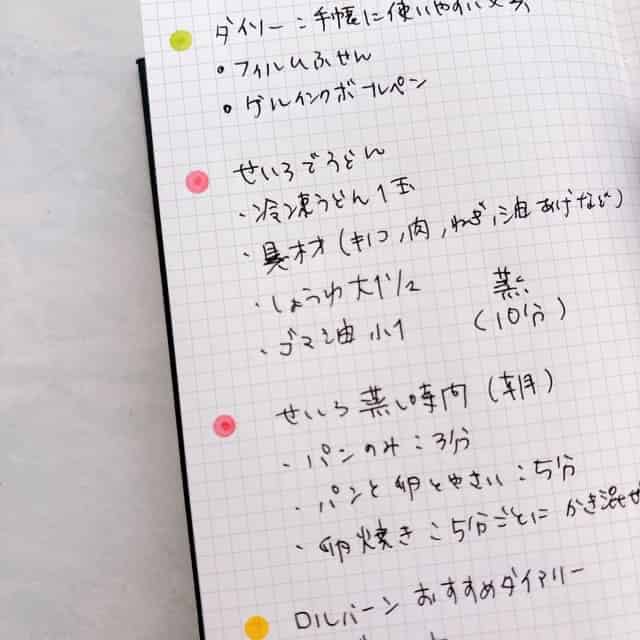 ダイソー:手帳に使いやすい
・フィルムふせん
・ゲルインクボールペン
せいろでうどん
・冷凍うどん1玉
・具材(キノコ,肉,ねぎ,油あげなど)
・しょうゆ大1/2
蒸し
・ゴマ油小1
(10分)
せいろ蒸し時間(朝用)
・パンのみ:3分
・パンと卵とやさい:5分
・卵焼き:5分ごとにかき混ぜ
ロルバーンおすすめダイアリー